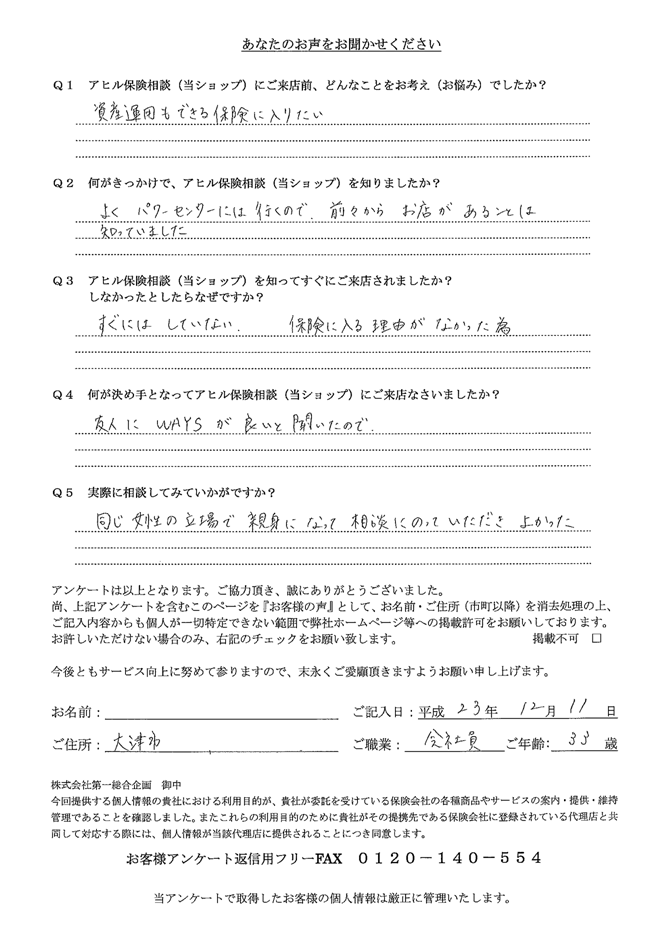 あなたのお声をお聞かせください
Q1 アヒル保険相談（当ショップ）にご来店前、どんなことをお考え（お悩み）でしたか？
資産運用もできる保険に入りたい
Q2 何がきっかけで、アヒル保険相談（当ショップ）を知りましたか？
よく パワーセンターには 行くので、前々から お店が あることは
知っていました
Q3 アヒル保険相談（当ショップ）を知ってすぐにご来店されましたか？
しなかったとしたらなぜですか？
すぐには していない． 保険に入る 理由が なかった 為
Q4 何が決め手となってアヒル保険相談（当ショップ）にご来店なさいましたか？
友人に WAYS が 良いと 聞いたので．
Q5 実際に相談してみていかがですか？
同じ 女性の 立場で 親身に なって 相談にのって いただき よかった
アンケートは以上となります。ご協力頂き、誠にありがとうございました。
尚、上記アンケートを含むこのページを『お客様の声』として、お名前・ご住所（市町以降）を消去処理の上、
ご記入内容からも個人が一切特定できない範囲で弊社ホームページ等への掲載許可をお願いしております。
お許しいただけない場合のみ、右記のチェックをお願い致します。 掲載不可 □
今後ともサービス向上に努めて参りますので、末永くご愛顧頂きますようお願い申し上げます。
お名前： ご記入日：平成 23 年 12 月 11 日
ご住所： 大津市 ご職業： 会社員 ご年齢： 33 歳
株式会社第一総合企画 御中
今回提供する個人情報の貴社における利用目的が、貴社が委託を受けている保険会社の各種商品やサービスの案内・提供・維持
管理であることを確認しました。またこれらの利用目的のために貴社がその提携先である保険会社に登録されている代理店と共
同して対応する際には、個人情報が当該代理店に提供されることにつき同意します。
お客様アンケート返信用フリーFAX ０１２０－１４０－５５４
当アンケートで取得したお客様の個人情報は厳正に管理いたします。